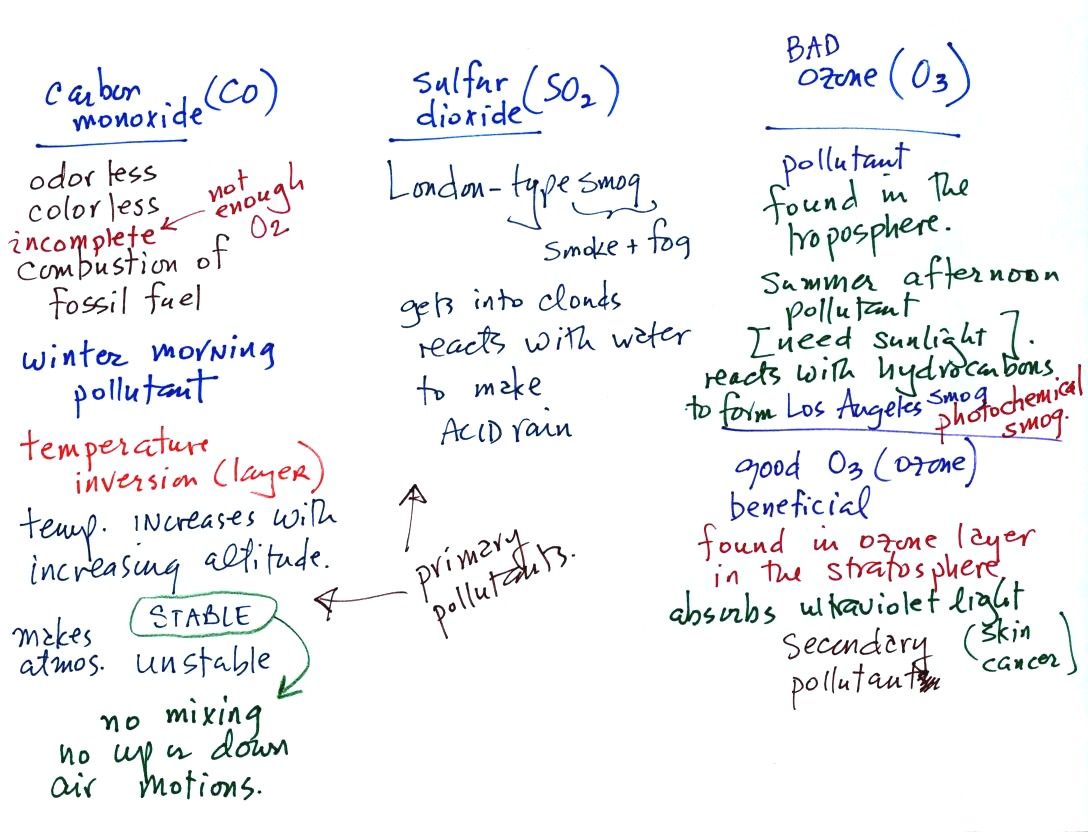 carbon
monoxide (CO)
odorless
colorless
not
enough
O2
incomplete
combustion of
fossil fuel
winter morning
pollutant
temperature
inversion (layer)
temp. increases with
increasing altitude.
STABLE
makes
atmos. unstable
no mixing
no up or down
air motions.
sulfur
dioxide (SO2)
London-type smog
smoke + fog
gets into clouds
reacts with water
to make
ACID rain
primary
pollutants.
BAD
ozone (O3)
pollutant
found in the
troposphere.
Summer afternoon
pollutant
[need sunlight].
reacts with hydrocarbons
to form Los Angeles smog
photochemical
smog.
good O3 (ozone)
beneficial
found in ozone layer
in the stratosphere
absorbs ultraviolet light
(skin
cancer)
Secondary
pollutant